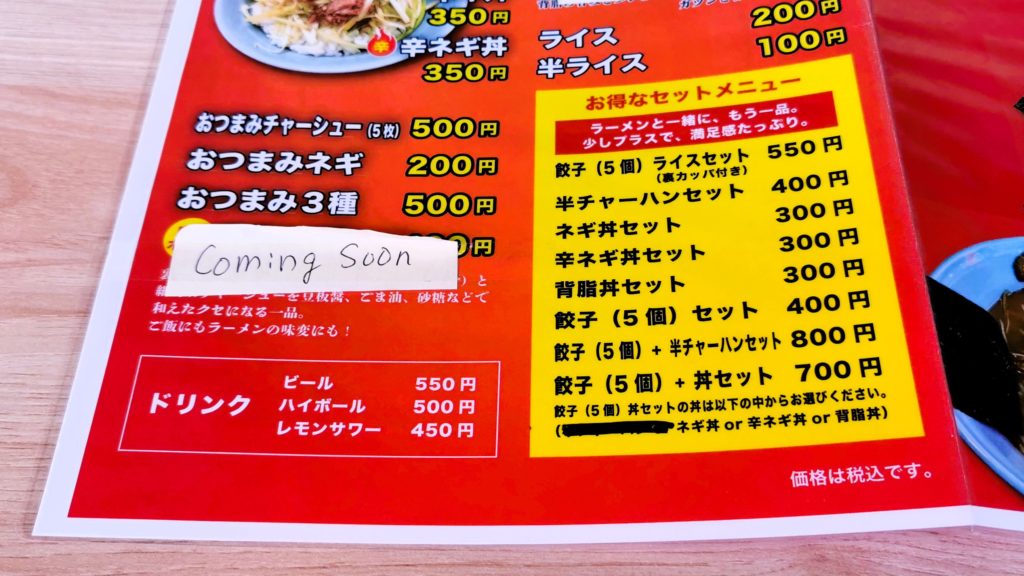 350円
辛
辛ネギ丼
350円
おつまみチャーシュー(5枚) 500円
おつまみネギ 200円
おつまみ3種 500円
Coming Soon
円
)と
シューを豆板醤、ごま油、砂糖などで
和えたクセになる一品。
ご飯にもラーメンの味変にも!
ドリンク
ビール 550円
ハイボール 500円
レモンサワー 450円
200円
ライス
100円
半ライス
お得なセットメニュー
ラーメンと一緒に、もう一品。
少しプラスで、満足感たっぷり。
餃子(5個)ライスセット 550円
(裏カッパ付き)
半チャーハンセット 400円
ネギ丼セット 300円
辛ネギ丼セット 300円
背脂丼セット 300円
餃子(5個)セット 400円
餃子(5個)+半チャーハンセット 800円
餃子(5個)+丼セット 700円
餃子(5個)丼セットの丼は以下の中からお選びください。
( ネギ丼 or 辛ネギ丼 or 背脂丼)
価格は税込です。